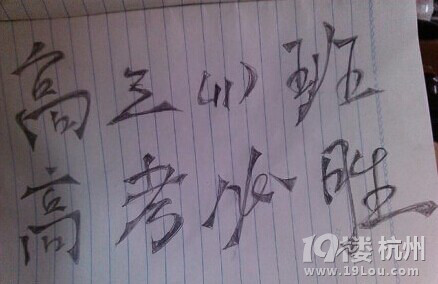 高三(11)班
高考必胜
19楼 杭州
www.19Lou.com